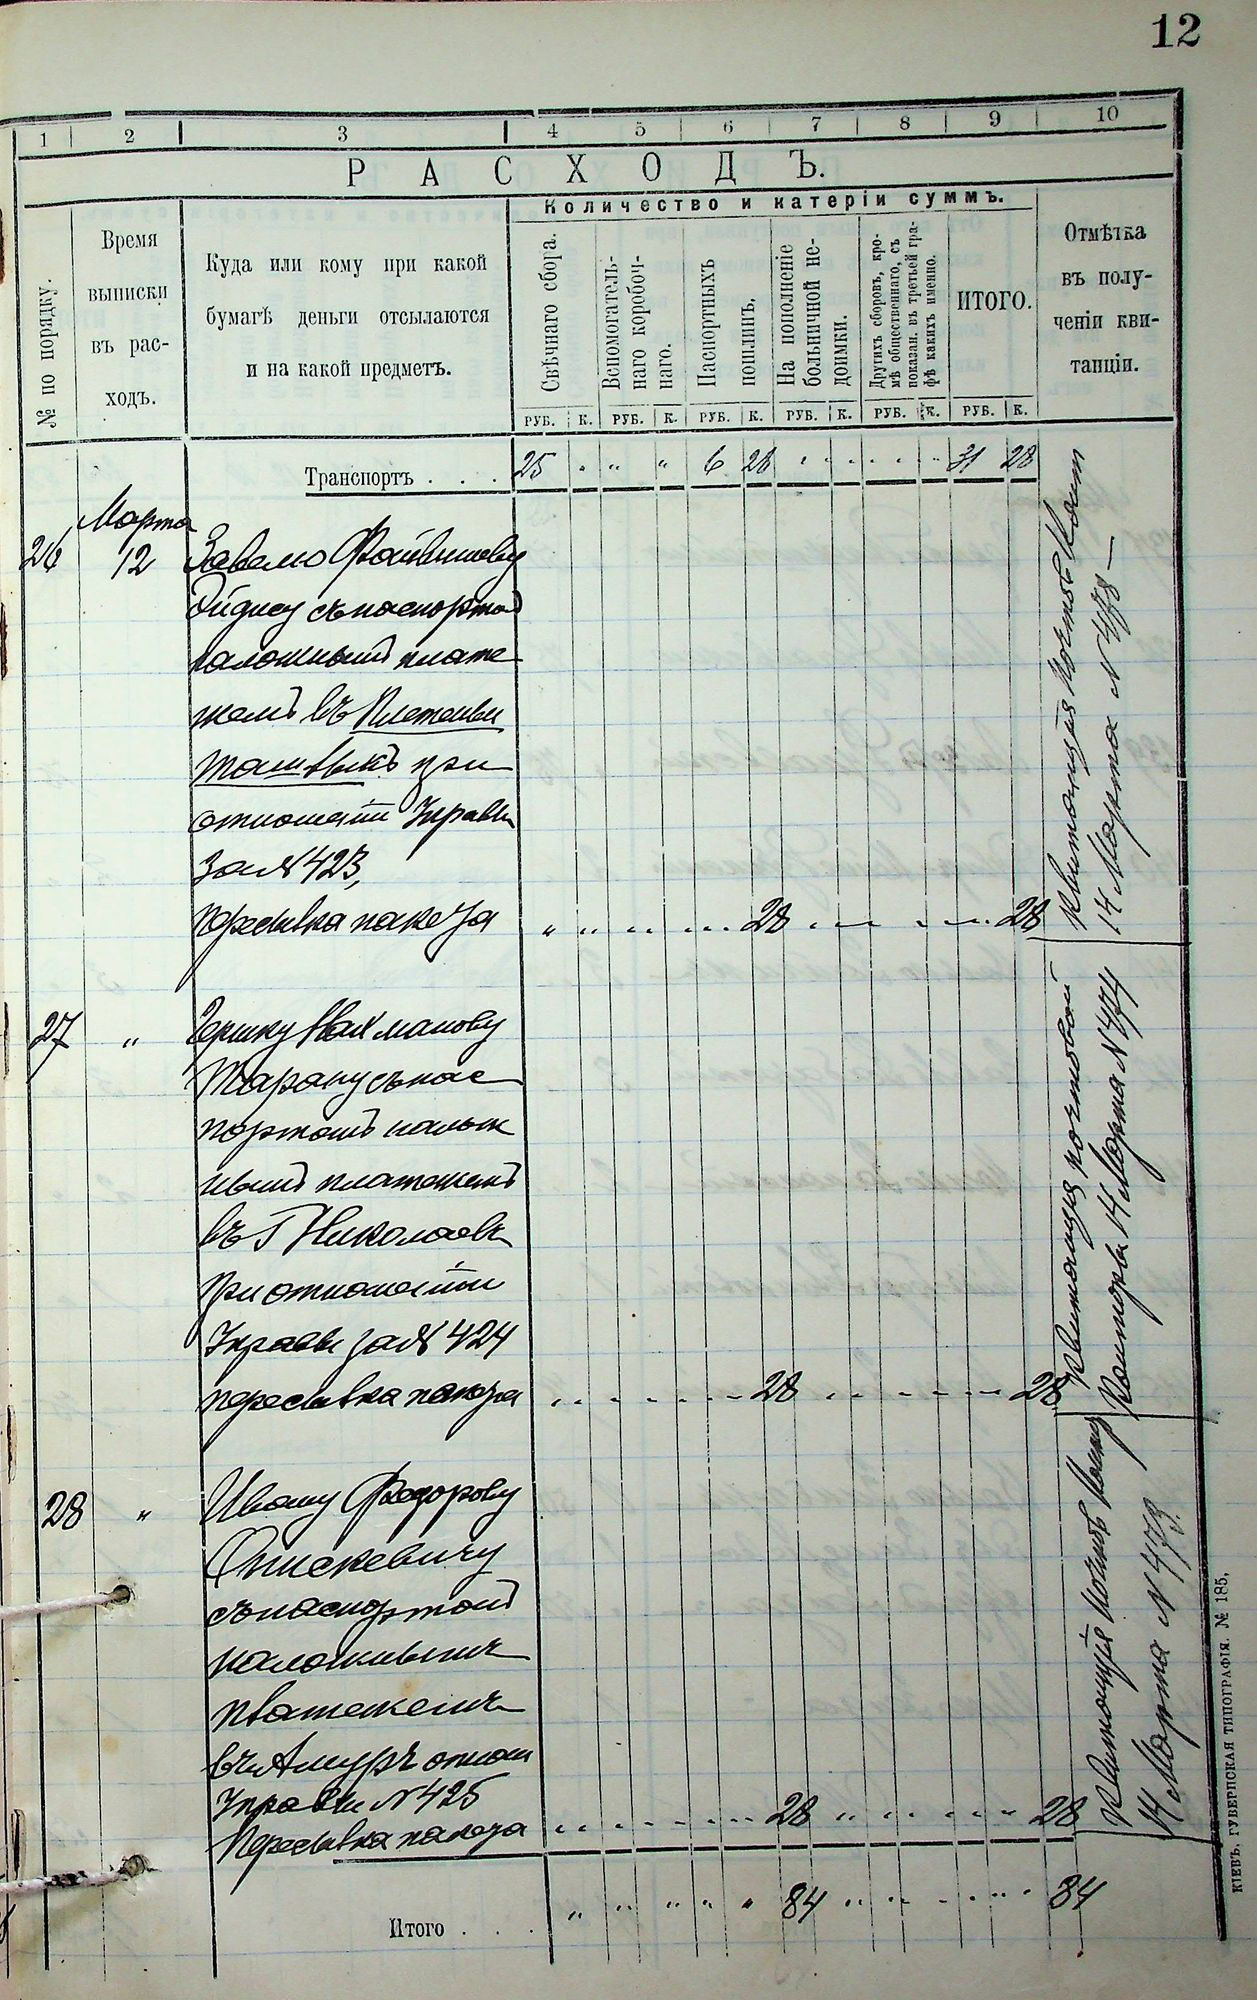 12
1 2 3 4 5 6 7 8 9 10
РАСХОДЪ.
Количество и катеріи суммъ.
№ по порядку.
Время
выписки
въ рас-
ходъ.
Куда или кому при какой
бумагѣ деньги отсылаются
и на какой предметъ.
Свѣчнаго сбора.
Вспомогатель-
наго коробоч-
наго.
Паспортныхъ
пошлинъ.
На пополненіе
больничной не-
доимки.
Другихъ сборовъ, кро-
мѣ общественнаго, съ
показан. въ третьей гра-
фѣ какихъ именно.
ИТОГО.
Отмѣтка
въ полу-
ченіи кви-
танціи.
РУБ. К. РУБ. К. РУБ. К. РУБ. К. РУБ. К. РУБ. К.
Транспортъ . . . 25 " " " 6 28 31 28
Марта
26 12
съ паспортом
наложным плате
жем въ
при
отношеніи Управы
за № 423,
пересылка пакета 28 28
Квитанція Почтов Конт
14 Марта № 478 —
27 " Гершку Нахманову
Тарану съ пас
портомъ налож
нымъ платежемъ
въ Г Николаевъ
при отношеніи
Управы за № 424
пересылка пакета 28 28
Квитанція почтовой
Конторы 14 Марта № 474
28 " Ивану Федорову
съ паспортом
наложнымъ
платежемъ
въ Амуръ отнош
Управы № 425
Пересылка пакета 28 28
Квитанція Почтов
14 Марта № 473
Итого . . . 84 84
КІЕВЪ, ГУБЕРНСКАЯ ТИПОГРАФІЯ. № 185,